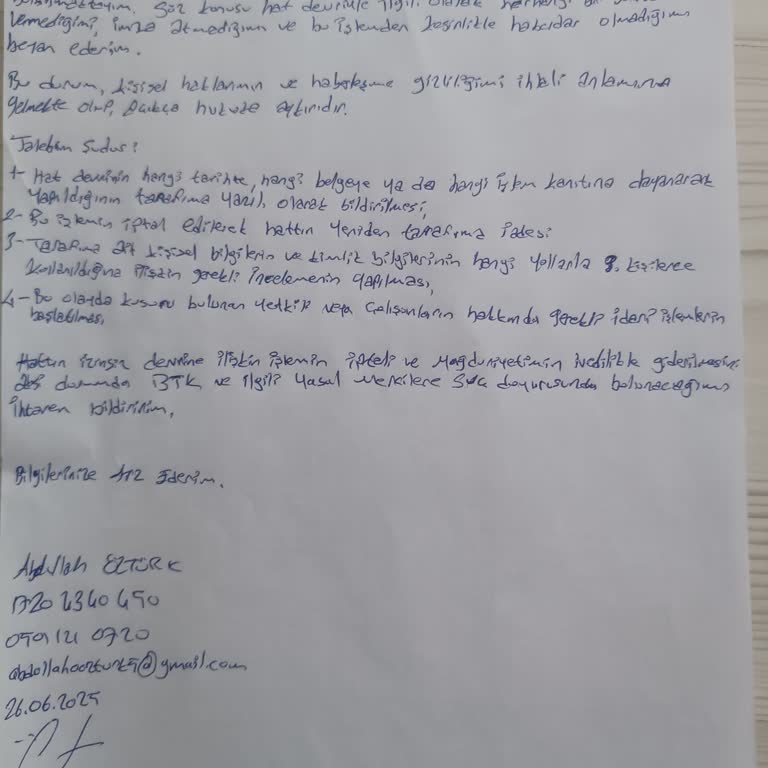 Söz konusu hat devriyle ilgili olarak herhangi bir
vermediğimi, imza atmadığımı ve bu işlemden kesinlikle haberdar olmadığımı
beyan ederim.
Bu durum, kişisel haklarımın ve haberleşme gizliliğimi ihlali anlamına
gelmekte olup, açıkça hukuka aykırıdır.
Talebim Şudur:
1- Hat devrinin hangi tarihte, hangi belgeye ya da hangi işlem kanıtına dayanarak
yapıldığının tarafıma yazılı olarak bildirilmesi,
2- Bu işlemin iptal edilerek hattın yeniden tarafıma iadesi
3- Tarafıma ait kişisel bilgilerin ve kimlik bilgilerinin hangi yollarla 3. kişilerce
kullanıldığına ilişkin gerekli incelemenin yapılması,
4- Bu olayda kusuru bulunan yetkili veya çalışanların hakkında gerekli idari işlemlerin
başlatılması,
Hattın izinsiz devrine ilişkin işlemin iptali ve mağduriyetimin ivedilikle giderilmesini
aksi durumda BTK ve ilgili yasal mercilere suç duyurusunda bulunacağımı
ihtaren bildiririm,
Bilgilerinize Arz Ederim.
Abdullah ÖZTÜRK
26.06.2025